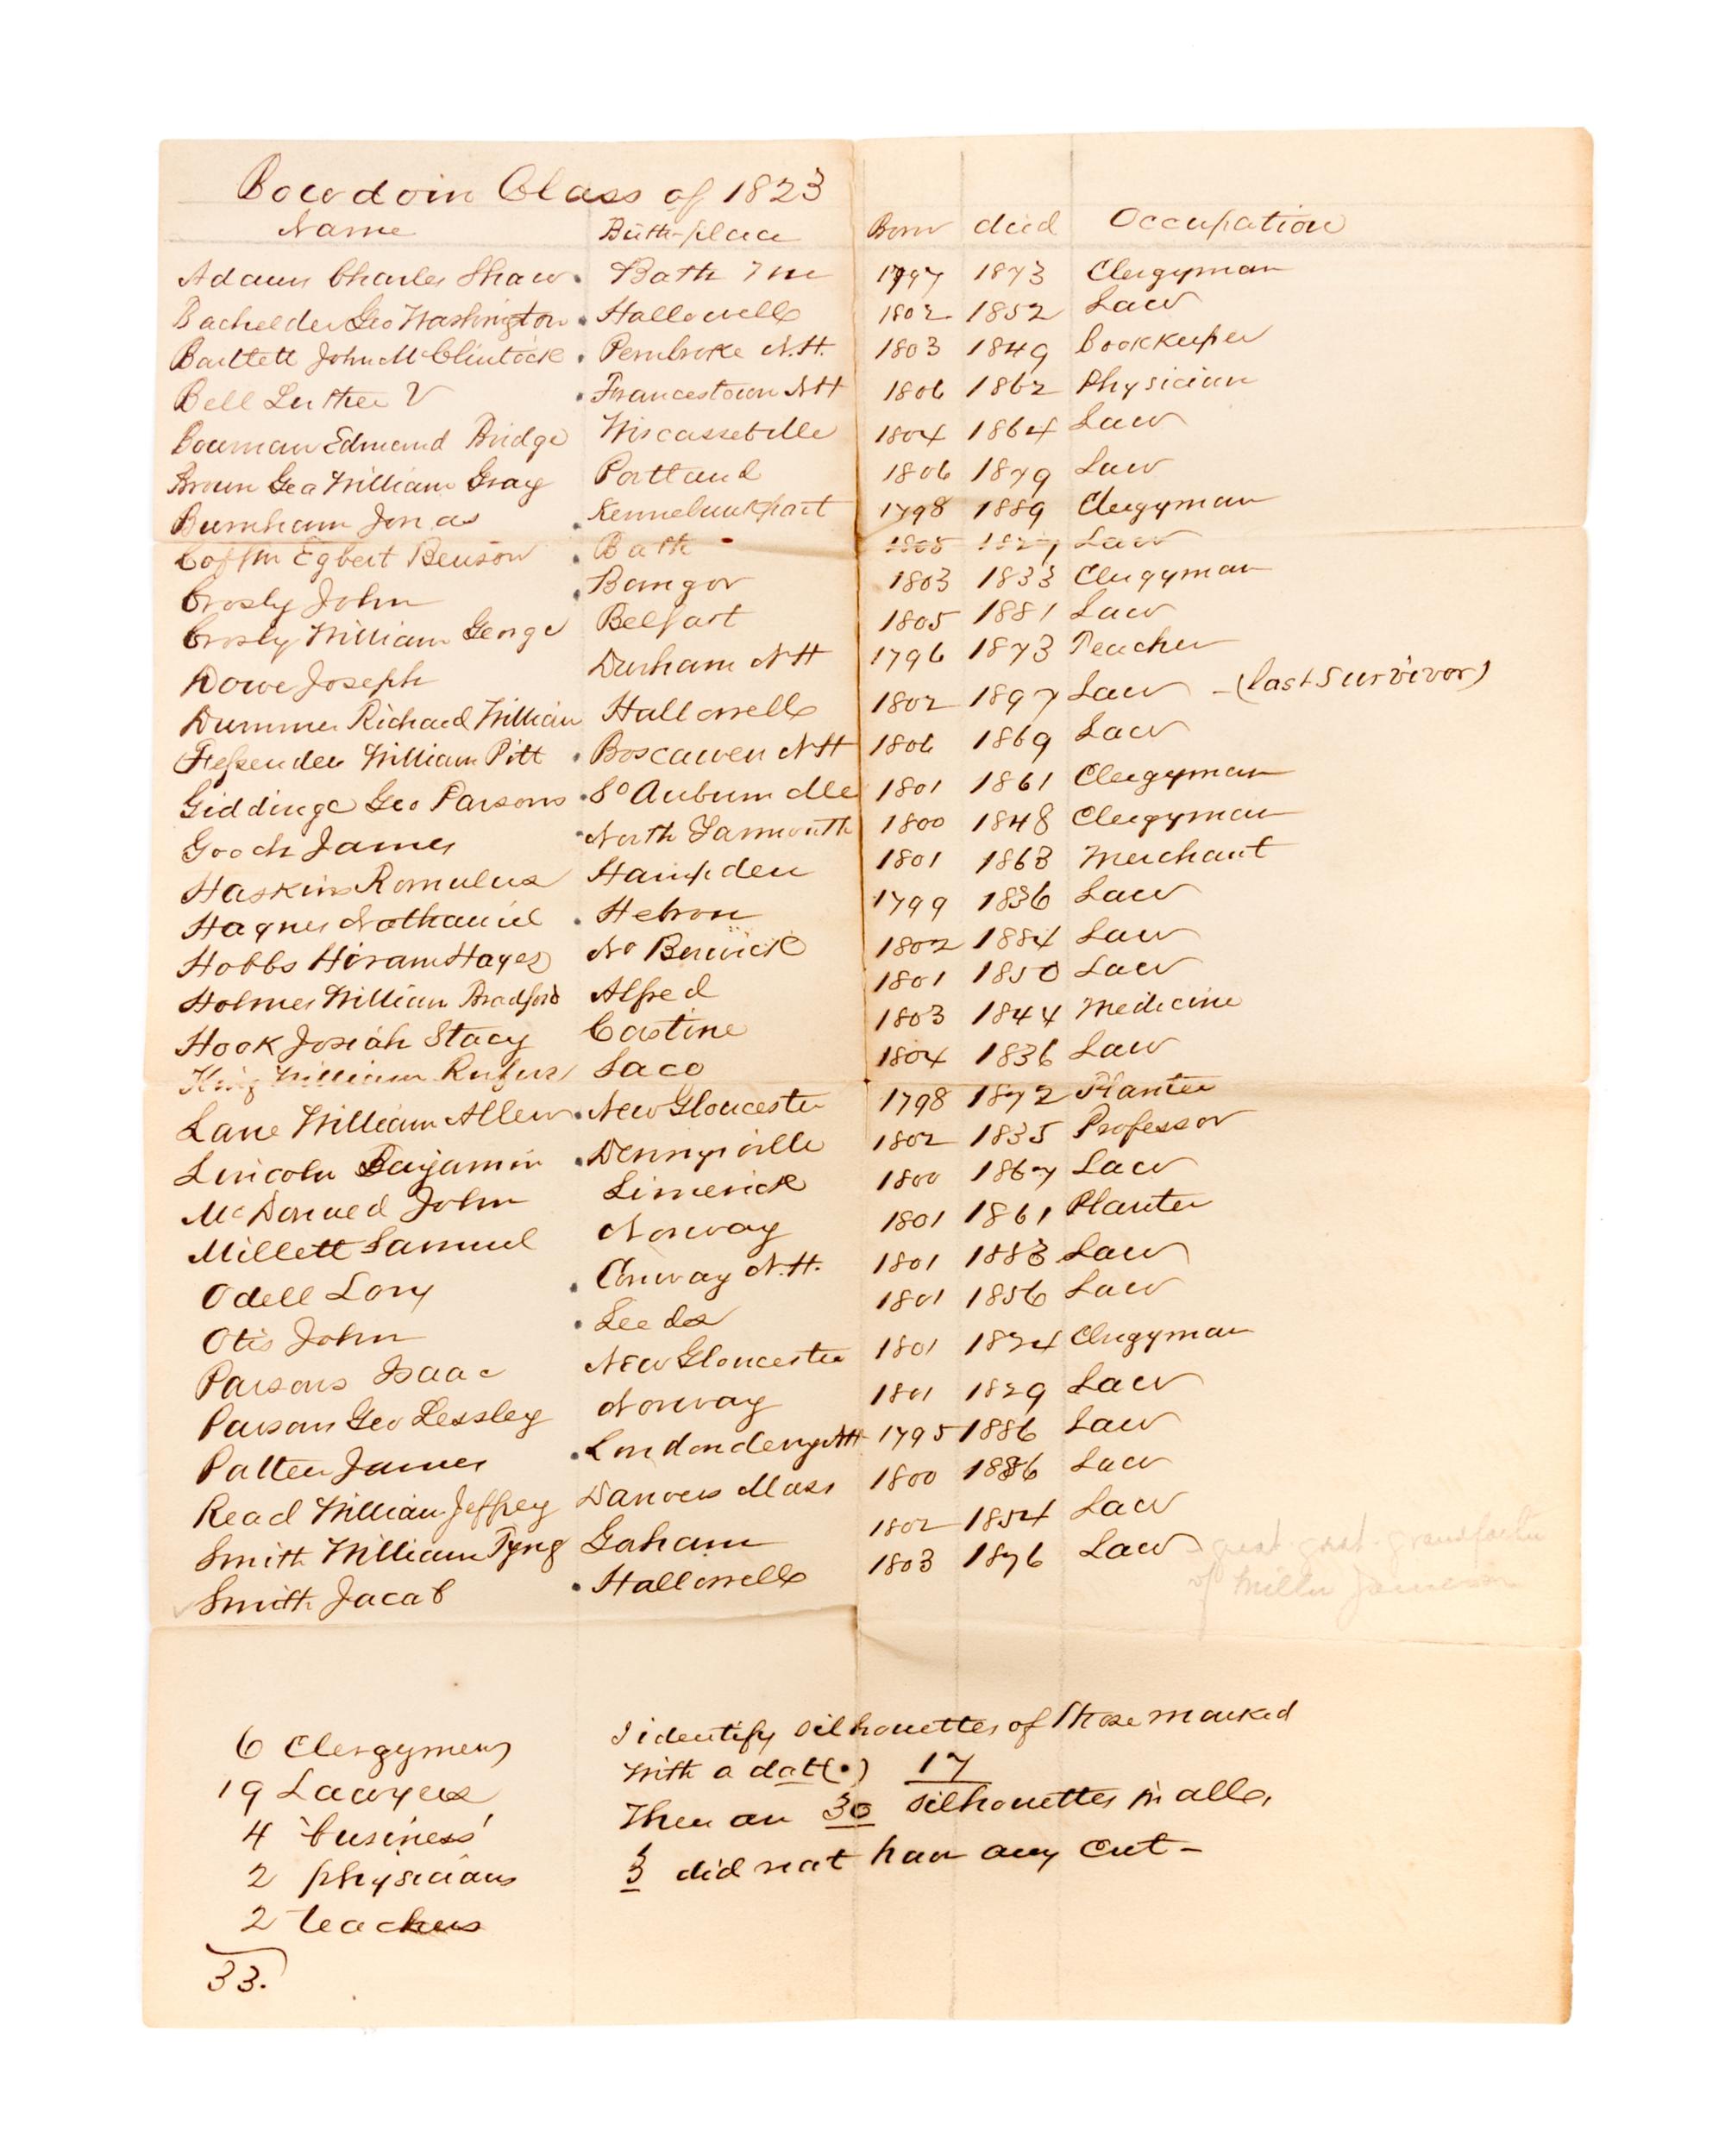 Bowdoin Class of 1823
Name Birth-place Born died Occupation
Adams Charles Shaw . Bath Me 1797 1873 Clergyman
Bachelder Geo Washington . Hallowell 1802 1852 Law
Bartlett John McClintock . Pembroke N.H. 1803 1849 Bookkeeper
Bell Luther V . Francestown NH 1806 1862 Physician
Bowman Edmund Bridge Wiscasset Me 1804 1864 Law
Brown Geo William Gray Portland 1806 1879 Law
Burnham Jonas . Kennebunkport 1798 1889 Clergyman
Coffin Egbert Benson . Bath 1805 1827 Law
Crosby John . Bangor 1803 1833 Clergyman
Crosby William George Belfast 1805 1881 Law
Dowe Joseph Durham NH 1796 1873 Teacher
Dummer Richard William Hallowell 1802 1897 Law - (last survivor)
Fessenden William Pitt . Boscawen NH 1806 1869 Law
Giddinge Geo Parsons . So Auburn Me 1801 1861 Clergyman
Gooch James . North Yarmouth 1800 1848 Clergyman
Haskins Romulus Hampden 1801 1863 Merchant
Haynes Nathaniel . Hebron 1799 1836 Law
Hobbs Hiram Hayes No Berwick 1802 1884 Law
Holmes William Bradford Alfred 1801 1850 Law
Hook Josiah Stacy Castine 1803 1844 Medicine
King William Rufus Saco 1804 1836 Law
Lane William Allen . New Gloucester 1798 1872 Planter
Lincoln Benjamin . Dennysville 1802 1835 Professor
McDonald John Limerick 1800 1867 Law
Millett Samuel Norway 1801 1861 Planter
Odell Lory . Conway N.H. 1801 1883 Law
Otis John . Leeds 1801 1856 Law
Parsons Isaac New Gloucester 1801 1824 Clergyman
Parson Geo Lessley Norway 1801 1829 Law
Patten James . Londonderry NH 1795 1886 Law
Read William Jeffrey Danvers Mass 1800 1886 Law
Smith William Tyng Goham 1802 1854 Law
Smith Jacob . Hallowell 1803 1876 Law great-great-grandfather
of Miller Jameson
6 Clergymen
19 Lawyers
4 'business'
2 physicians
2 teachers
33.
I identify silhouettes of those marked
with a dot (•) 17
There are 30 silhouettes in all,
3 did not have any cut -